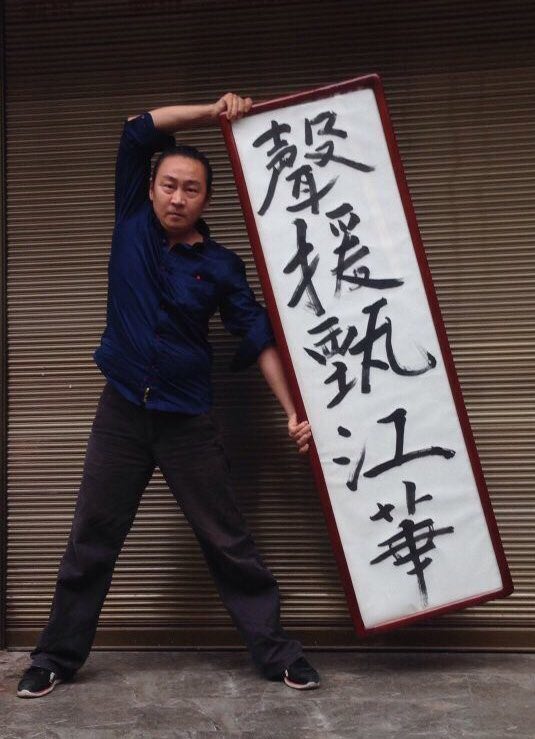 聲援甄江華